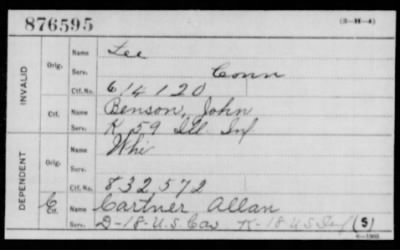 876595
INVALID
Orig. Name Lee
Serv. Conn
Ctf. No. 614120
Ctf. Name Benson, John
Serv. K 59 Ill Inf
DEPENDENT
Orig. Name Whi
Serv.
Ctf. No. 832572
C Ctf. Name Cartner Allan
Serv. D-18-U.S Cav K-18 U.S Inf (S)